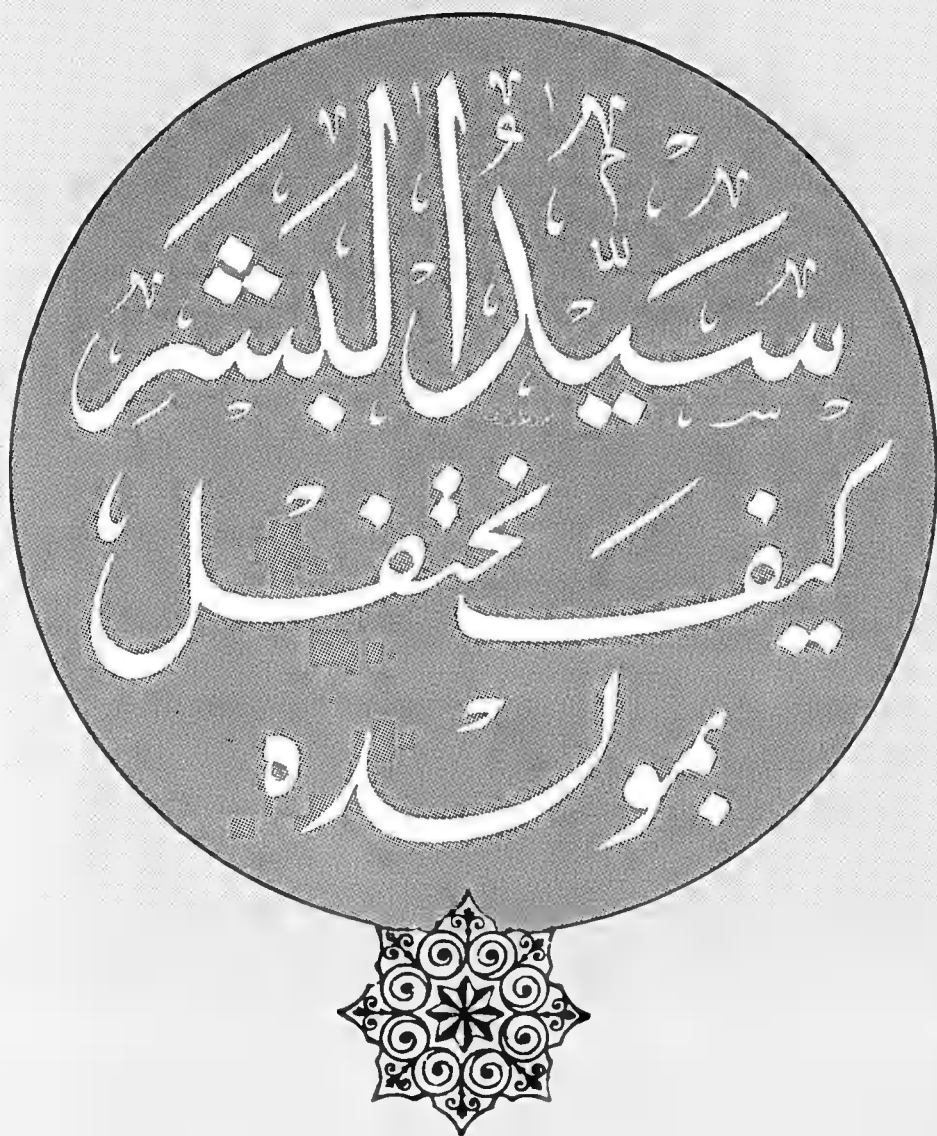 سَيِّدُ البَشَرِ
كيفَ نحتفل
بمولده